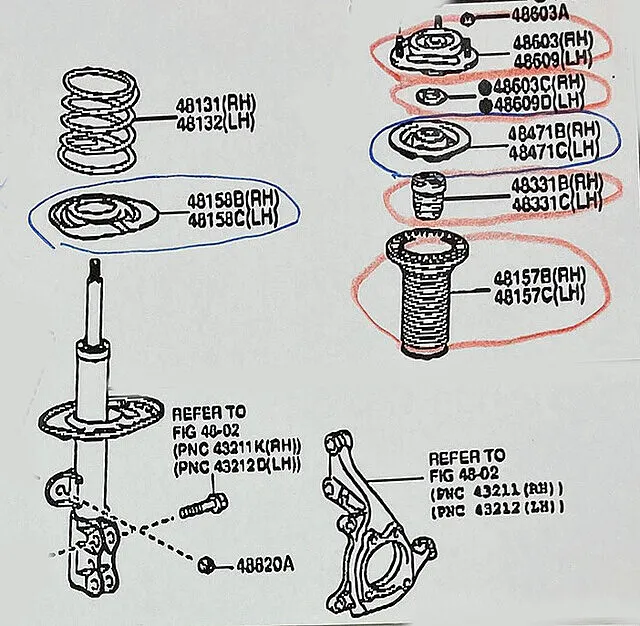 48603A
48603(RH)
48609(LH)
48603C(RH)
48609D(LH)
48131(RH)
48132(LH)
48471B(RH)
48471C(LH)
48158B(RH)
48158C(LH)
48331B(RH)
48331C(LH)
48157B(RH)
48157C(LH)
REFER TO
FIG 48-02
(PNC 43211K(RH))
(PNC 43212D(LH))
REFER TO
FIG 48-02
(PNC 43211 (RH))
(PNC 43212 (LH))
48820A